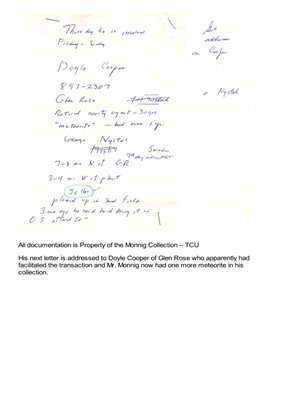 Thursday he is
Friday -
Get
address
on Cooper
Doyle Cooper
897-2307
Glen Rose
+ Nystel
Retired county agent -
"meteorite" - had over 1 yr.
George Nystel
7-8 mi N of GR
3-4 mi W of plant
30 lbs
plowed up in field
3 mo ago he said he'd bring it in
All documentation is Property of the Monnig Collection – TCU
His next letter is addressed to Doyle Cooper of Glen Rose who apparently had
facilitated the transaction and Mr. Monnig now had one more meteorite in his
collection.